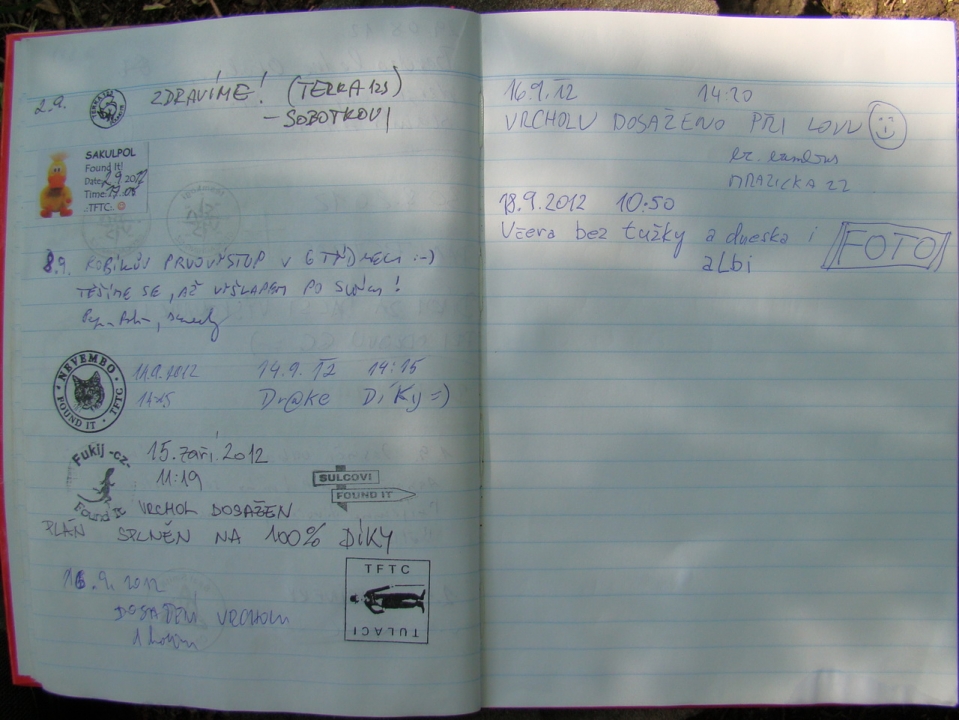 2.9. ZDRAVÍME! (TERKA 123)
– SOBOTKOVI
SAKULPOL
Found it!
Date: 2.9.2012
Time: 17:08
.:TFTC:.
8.9. ROBÍKŮV PRVOVÝSTUP V 6 TÝDNECH :-)
TĚŠÍME SE, AŽ VYŠLAPEM PO SVÝCH!
NEVEMBO
FOUND IT TFTC
2012
14:45
14.9.12 14:15
Dr@ke Díky =)
Fukij -cz-
Found It
15.září.2012
11:19
SULCOVI
FOUND IT
VRCHOL DOSAŽEN
PLÁN SPLNĚN NA 100% DÍKY
16.9.2012
DOSAŽENÍ VRCHOLU
TFTC
TULACI
16.9.12 14:20
VRCHOLU DOSAŽENO PŘI LOVU
18.9.2012 10:50
Včera bez tužky a dneska i FOTO
albi